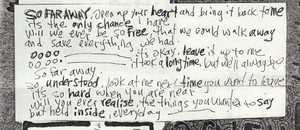 SO FAR AWAY, open up your heart and bring it back to me
it's the only chance I have
will we ever be so free, that we could walk away
and save everything we had
oooo. it's okay, leave it up to me
oooo. it took a long time, but we'll always be
So far away
So understood, look at me now, time you want to leave
it's so hard when you are near
will you ever realise, the things you wanted to say
but held inside, everyday